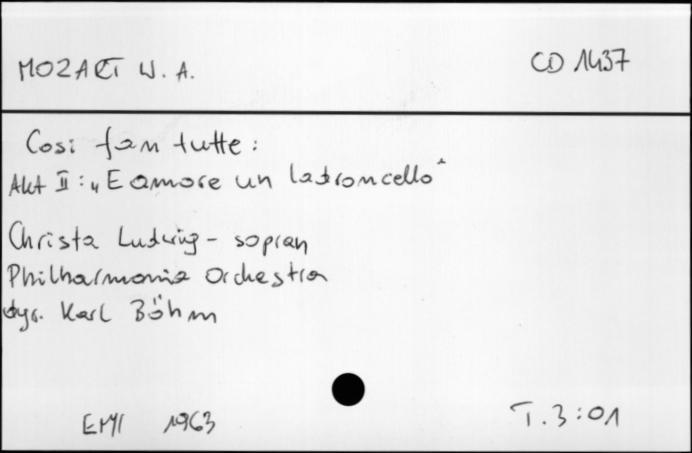 MOZART W. A. CD 1437
Cosi fan tutte:
Akt II: „E amore un ladroncello"
Christa Ludwig - sopran
Philharmonia Orchestra
dyr. Karl Böhm
EMI 1963 T. 3:01